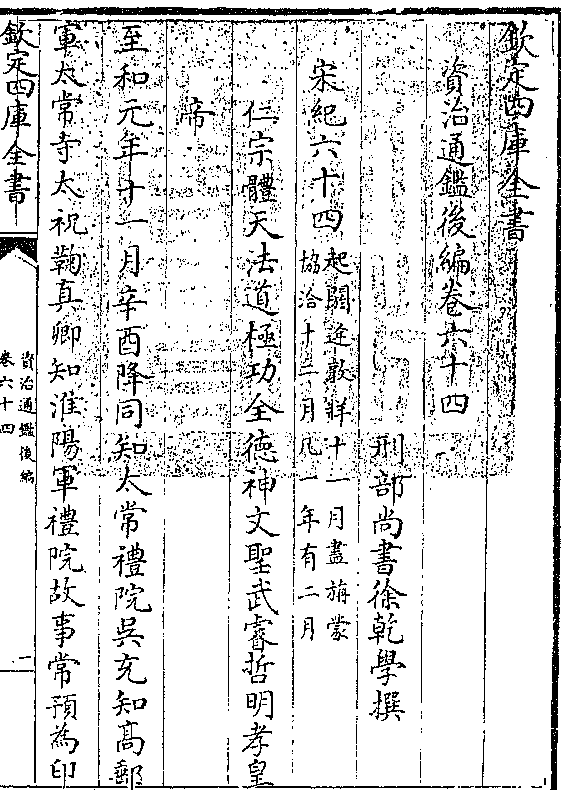 欽定四庫全書
資治通鑑後編卷六十四
刑部尚書徐乾學撰
宋紀六十四起閼逢敦牂十一月盡旃蒙
協洽十二月凡一年有二月
仁宗體天法道極功全德神文聖武睿哲明孝皇
帝
至和元年十一月辛酉降同知太常禮院吳充知高郵
軍太常寺太祝鞠真卿知淮陽軍禮院故事常預為印
欽定四庫全書
資治通鑑後編
卷六十四
一